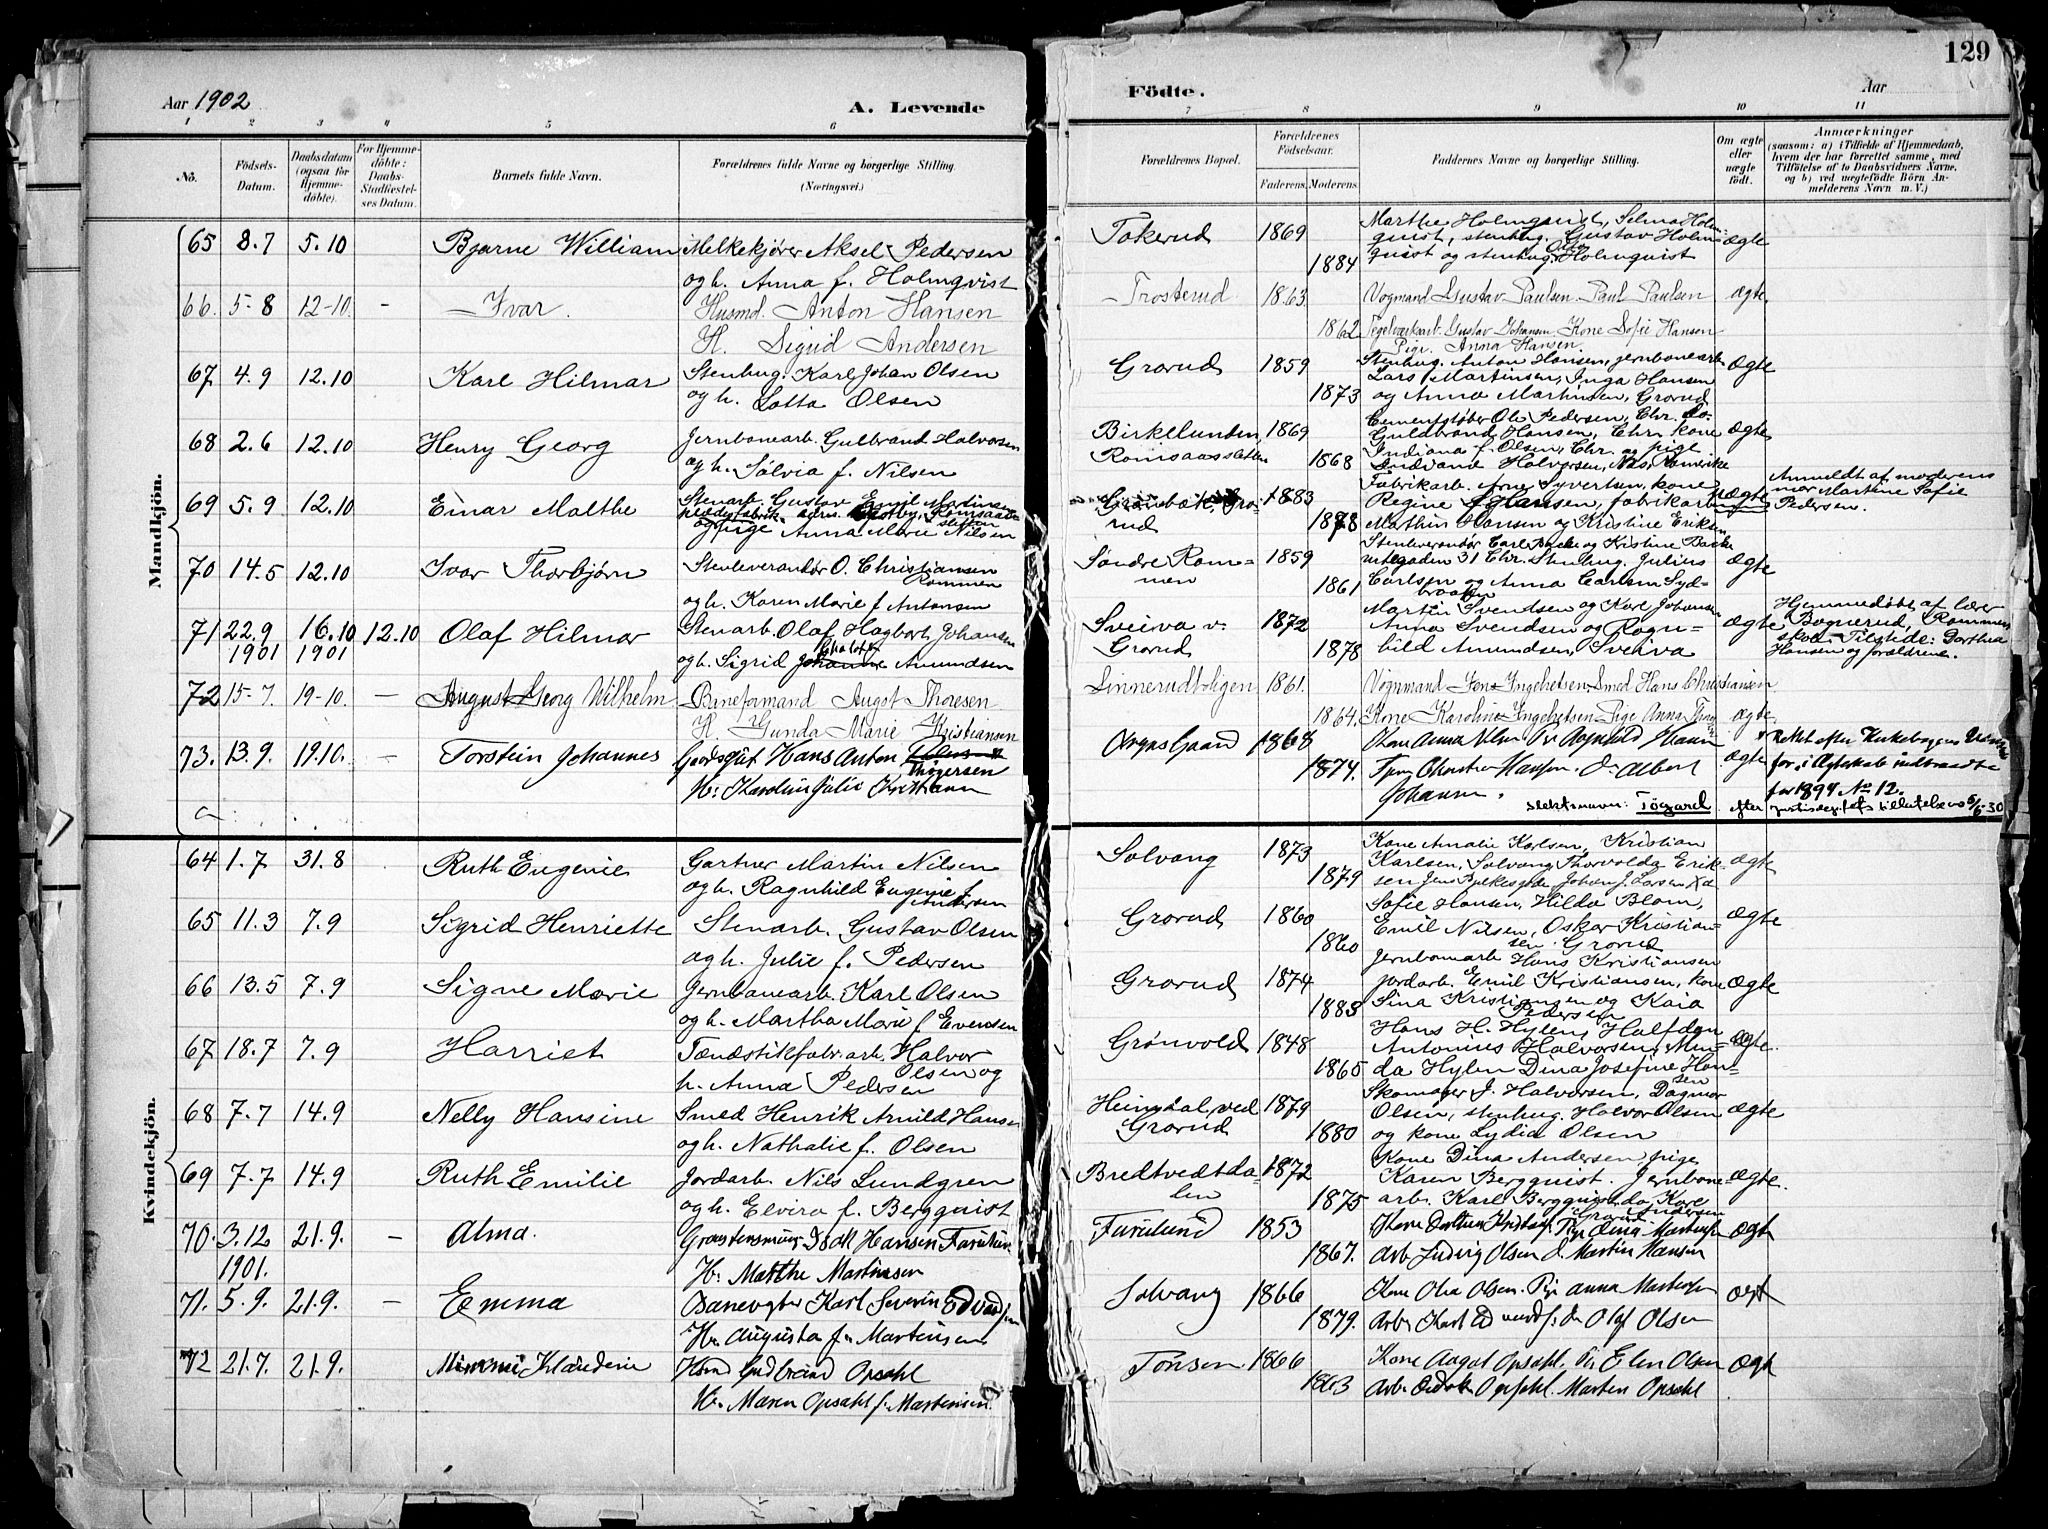 129
Aar 1902
A. Levende
Födte.
Aar
1 2 3 4 5 6 7 8 9 10 11
No.
Födsels-Datum.
Daabsdatum (ogsaa for Hjemmedöbte).
For Hjemmedöbte: Daabs-Stadfæstelses Datum.
Barnets fulde Navn.
Forældrenes fulde Navne og borgerlige Stilling. (Næringsvei.)
Forældrenes Bopæl.
Forældrenes Födselsaar.
Faderens. Moderens.
Faddernes Navne og borgerlige Stilling.
Om ægte eller uægte födt.
Anmærkninger
(saasom: a) i Tilfælde af Hjemmedaab, hvem der har forrettet samme, med Tilföielse af to Daabsvidners Navne, og b) ved uægtefödte Börn Anmelderens Navn m. V.)
Mandkjön.
65 8.7 5.10 Bjarne William Melkekjører Aksel Pedersen
og h. Anna f. Holmqvist
Tokerud 1869 1884 Marthe Holmquist, Selma Holmquist, stenhug. Gustav Holmquist og stenhug. Olav Holmquist ægte
66. 5-8 12-10. - Ivar. Husmd. Anton Hansen
H. Sigrid Andersen
Trosterud 1863 1862 Vognmand Gustav Paulsen. Paul Paulsen
Teglværksarb. Gustav Johansen, Kone Sofie Hansen
Pige. Anna Hansen. ægte
67 4.9 12.10 Karl Hilmar Stenhug. Karl Johan Olsen
og h. Lotta Olsen
Grorud 1859 1873 Stenhug. Anton Hansen, jernbanearb.
Lars Martinsen, Inga Hansen
og Anna Martinsen, Grorud ægte
68 2.6 12.10 Henry Georg Jernbanearb. Gulbrand Halvorsen
og h. Sølvia f. Nilsen
Birkelunden, Romsaassletten 1869 1868 Cementstøber Ole Pedersen, Chr.
Guldbrand Hansen, Chr. kone
Indiana f. Olsen, Chr. og pige
Halvorsen, Nes, Romerike ægte
69 5.9 12.10 Einar Malthe Stenarb. Gustav Emil Martinsen
og pige Anna Marie Nilsen
Grønbæk, Grorud 1883 1878 Fabrikarb. Arne Syvertsen, kone
Regine Hansen, fabrikarb.
Marthin Hansen og Kristine Eriksen uægte
Anmeldt af moderens mor Martine Sofie Pedersen.
70 14.5 12.10 Ivar Thorbjørn Stenleverandør O. Christiansen
Rommen
og h. Karen Marie f. Antonsen
Søndre Rommen 1859 1861 Stenleverandør Carl Backe og Kristine Backe
31 Chr. Stenhug. Julius
Carlsen og Anna Carlsen ægte
71 22.9 1901 16.10 1901 12.10 Olaf Hilmar Stenarb. Olaf Hagbart Johansen
og h. Sigrid Charlotte Amundsen
Sveiva v. Grorud 1872 1878 Martin Svendsen og Kone Johansen
Anna Svendsen og Ragnhild Amundsen, Sveiva ægte
Hjemmedøbt af lærer Bognerud, Rommen skole. Tilstede: Dorthea Hansen og forældrene.
72 15-7 19-10. - August Georg Wilhelm Baneformand August Thoresen
H. Gunda Marie Kristiansen
Linnerudboligen 1861. 1864. Vognmand Jens Ingebretsen Smed Hans Christiansen
Kone Karoline Ingebretsen Pige Anna ægte.
73. 13.9. 19.10. - Torstein Johannes Gaardsgut Hans Anton Thygersen
H. Karoline Julie
Gaard 1868 1874. Kone Anna Olsen Ragnhild Hansen
Hansen. Albert
Johansen. ægte
Rettet efter Kirkebogens
for i Ægteskab indtraadte
for 1894 No 12.
slektsnavn: Togard. efter justisdep.s tilladelse 5/6-30
Kvindekjön.
64 1.7 31.8 Ruth Eugenie Gartner Martin Nilsen
og h. Ragnhild Eugenie f. Andersen
Solvang 1873 1879 Kone Amalie Karlsen, Kristian
Karlsen, Solvang Thorvalda Eriksen ægte
65 11.3 7.9 Sigrid Henriette Stenarb. Gustav Olsen
og h. Julie f. Pedersen
Grorud 1860 1860 Sofie Hansen, Hilda Blom,
Emil Nilsen, Oskar Kristiansen. Grorud ægte
66 13.5 7.9 Signe Marie Jernbanearb. Karl Olsen
og h. Martha Marie f. Evensen
Grorud 1874 1883 Jernbanearb. Hans Kristiansen
jordarb. Emil Kristiansen, kone
Sina Kristiansen og Kaia Pedersen ægte
67 18.7 7.9 Harriet Tændstikfabr.arb. Halvor Olsen og
h. Anna Pedersen
Grønvold 1848 1865 Hans H. Hylen, Halfdan
Antonius Halvorsen, Menda Hylen Dina Josefine Hansen ægte.
68 7.7 14.9 Nelly Hansine Smed Henrik Arnild Hansen
og h. Nathalie f. Olsen
Heimdal ved Grorud 1879 1880 Skomager J. Halvorsen, Dagmar
Olsen, stenhug. Halvor Olsen
og kone Lydia Olsen ægte
69 7.7 14.9 Ruth Emilie Jordarb. Nils Lundgren
og h. Elvira f. Bergquist
Bredtvedtdalen 1872 1875 Kone Dina Andersen, pige
Karen Bergquist. Jernbanearb. Karl Bergquist ægte.
70. 3.12 1901. 21.9. - Alma. Isak Hansen Furulund
H. Marthe Martinsen
Furulund 1853 1867. Pige Dina Martinsen
Arb. Ludvig Olsen d. Martin Hansen ægt
71. 5.9. 21.9. - Emma Banevogter Karl Severin Edvardsen
H. Augusta f. Martinsen
Solvang 1866 1879. Kone Olva Olsen. Pige Anna Martinsen
Arb. Karl Edvardsen Olaf Olsen ægt
72 21.7. 21.9. Mimmi Klaudine Gudbrand Opsahl
H. Maren Opsahl f. Martinsen.
Tonsen 1866 1863 Kone Aagot Opsahl. Pige Elen Olsen
Arb. Opsahl. Martin Opsahl ægt